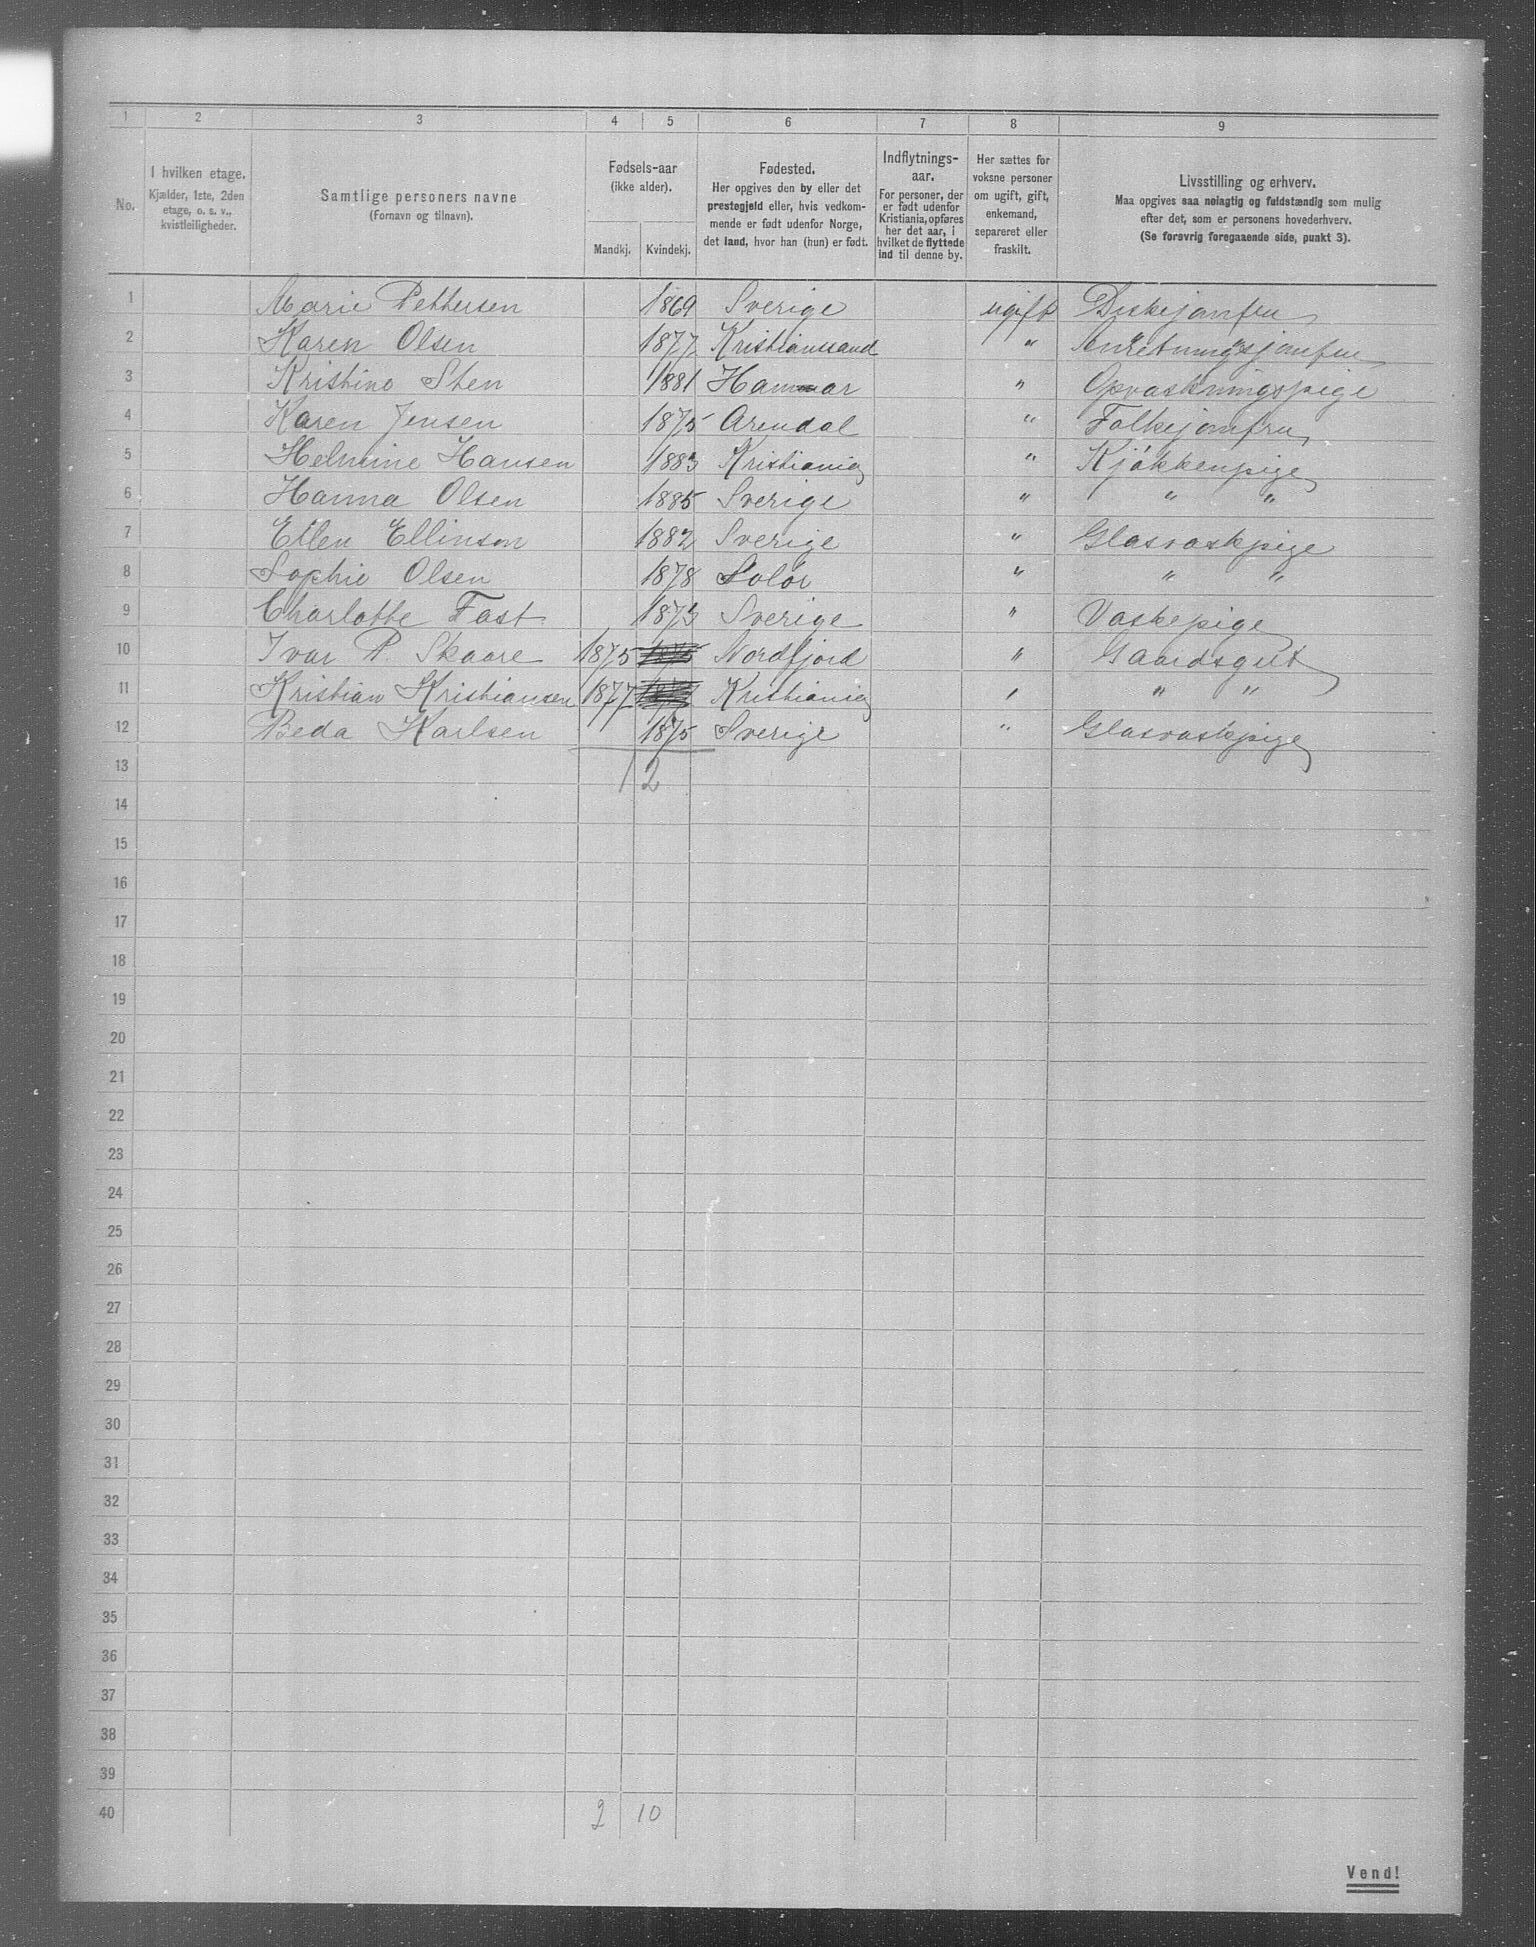 1 2 3 4 5 6 7 8 9
No.
I hvilken etage.
Kjælder, 1ste, 2den
etage, o. s. v.,
kvistleiligheder.
Samtlige personers navne
(Fornavn og tilnavn).
Fødsels-aar
(ikke alder).
Mandkj. Kvindekj.
Fødested.
Her opgives den by eller det
prestegjeld eller, hvis vedkom-
mende er født udenfor Norge,
det land, hvor han (hun) er født.
Indflytnings-
aar.
For personer, der
er født udenfor
Kristiania, opføres
her det aar, i
hvilket de flyttede
ind til denne by.
Her sættes for
voksne personer
om ugift, gift,
enkemand,
separeret eller
fraskilt.
Livsstilling og erhverv.
Maa opgives saa nøiagtig og fuldstændig som mulig
efter det, som er personens hovederhverv.
(Se forøvrig foregaaende side, punkt 3).
1 Marie Pettersen 1869 Sverige ugift Diskejomfru
2 Karen Olsen 1877 Kristianssand " Anretningsjomfru
3 Kristine Sten 1881 Hammar " Opvaskningspige
4 Karen Jensen 1875 Arendal " Falkejomfru
5 Helmine Hansen 1883 Kristiania " Kjøkkenpige
6 Hanna Olsen 1885 Sverige " " "
7 Ellen Ellinson 1882 Sverige " Glasvaskpige
8 Sophie Olsen 1878 Solør " " "
9 Charlotte Fast 1873 Sverige " Vaskepige
10 Ivar P. Skaare 1875 Nordfjord " Gaardsgut
11 Kristian Kristiansen 1877 Kristiania " " "
12 Beda Karlsen 1875 Sverige " Glasvaskpige
13 12
14
15
16
17
18
19
20
21
22
23
24
25
26
27
28
29
30
31
32
33
34
35
36
37
38
39
40 2 10
Vend!